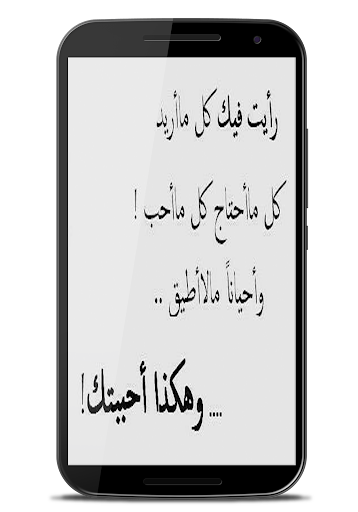 رأيت فيك كل ماأريد
كل ماأحتاج كل ماأحب !
وأحياناً مالاأطيق ..
.... وهكذا أحببتك!